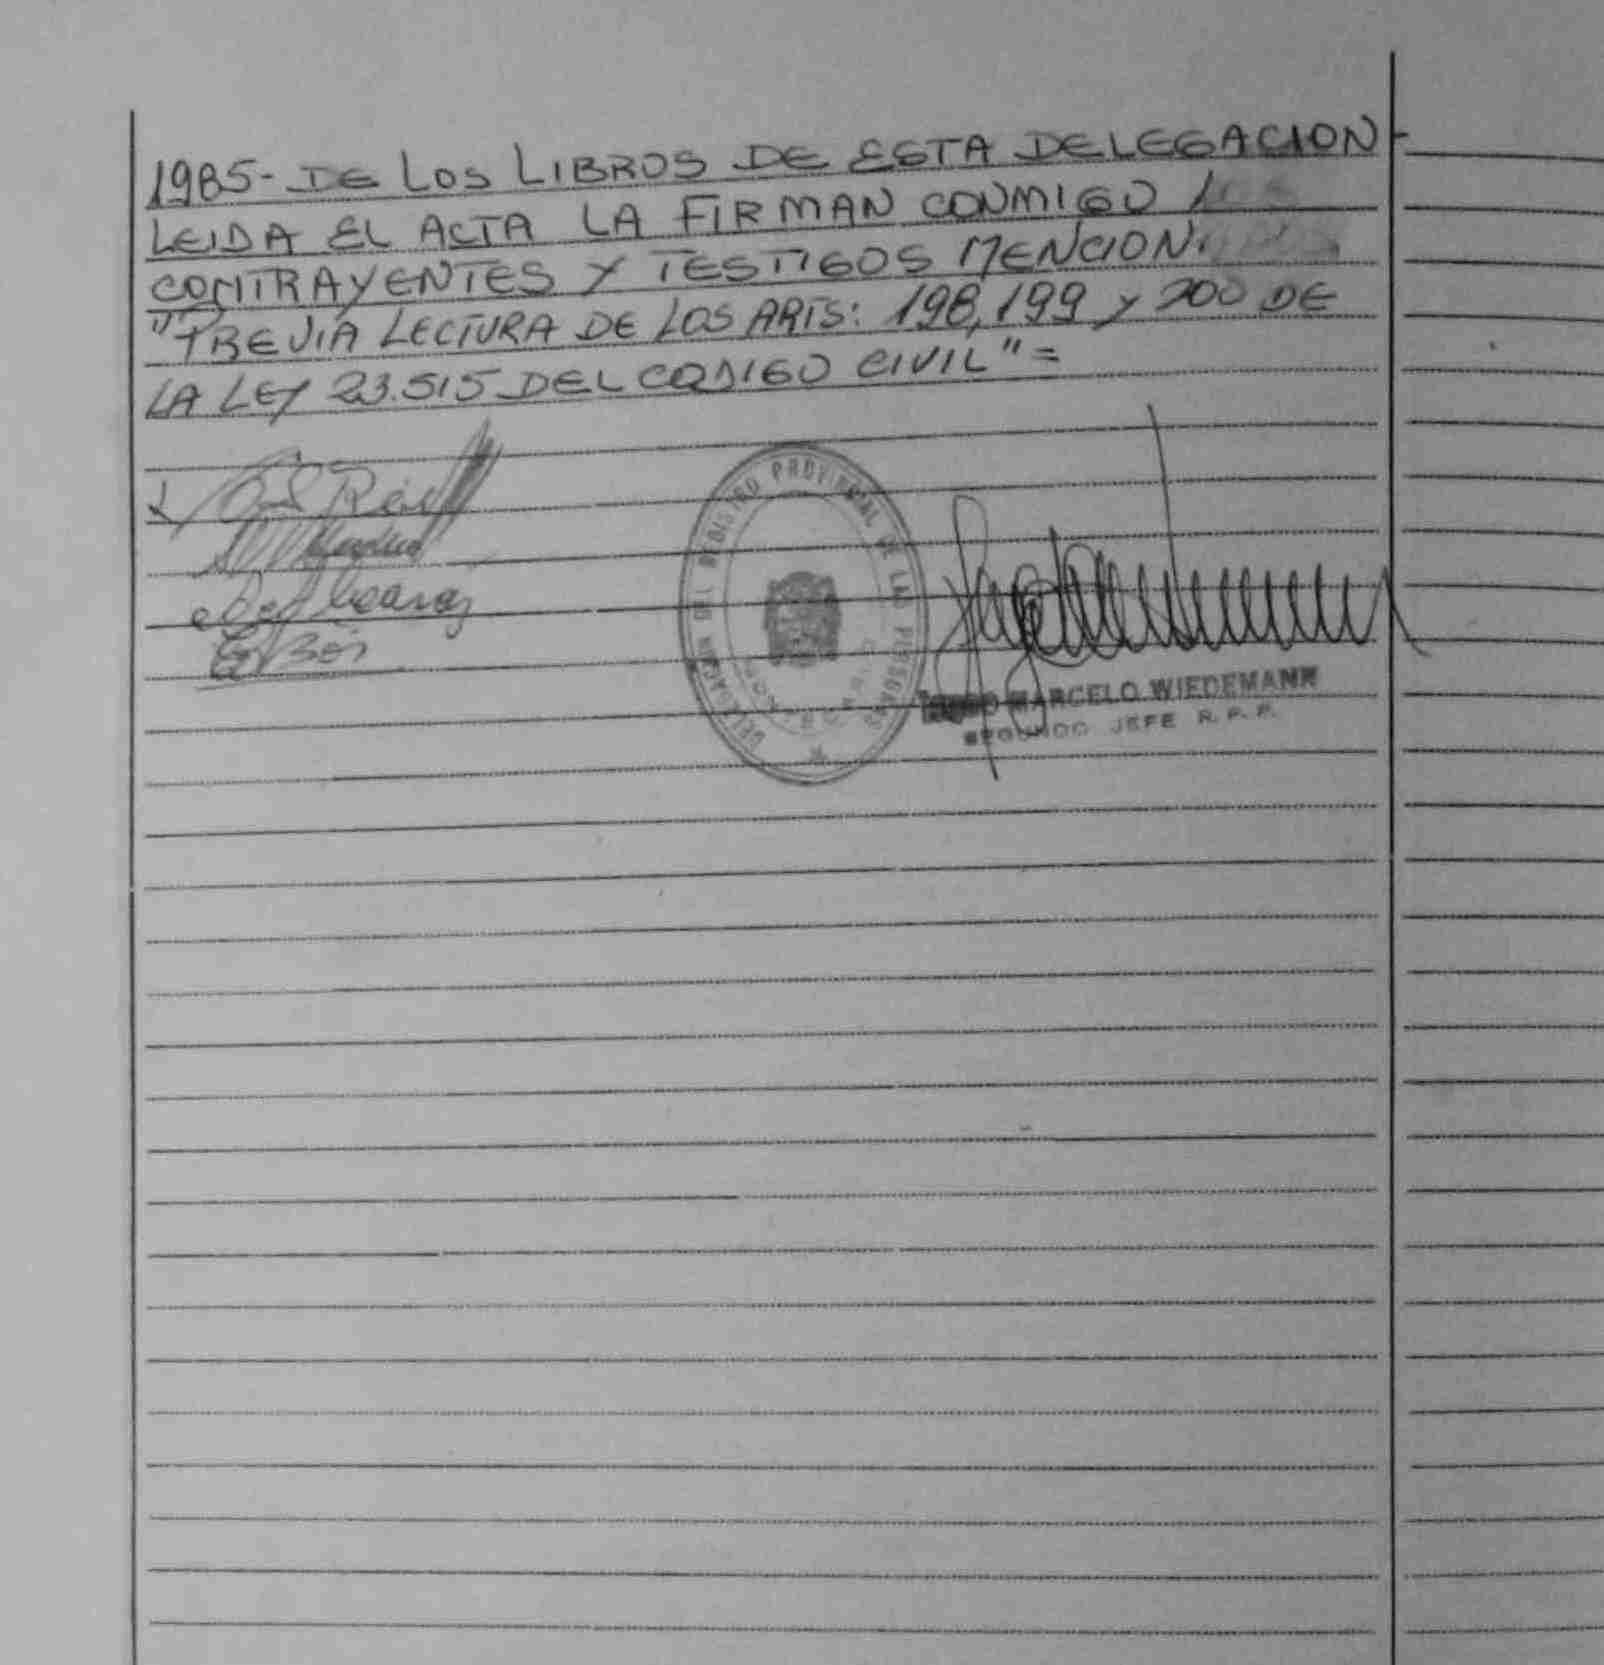 1985- DE LOS LIBROS DE ESTA DELEGACION-
LEIDA EL ACTA LA FIRMAN CONMIGO LOS
CONTRAYENTES Y TESTIGOS MENCIONADOS
"PREVIA LECTURA DE LOS ARTS: 198, 199 y 200 DE
LA LEY 23.515 DEL CODIGO CIVIL" =
DELEGACION DEL REGISTRO PROVINCIAL DE LAS PERSONAS
MARCELO WIEDEMANN
SEGUNDO JEFE R.P.P.